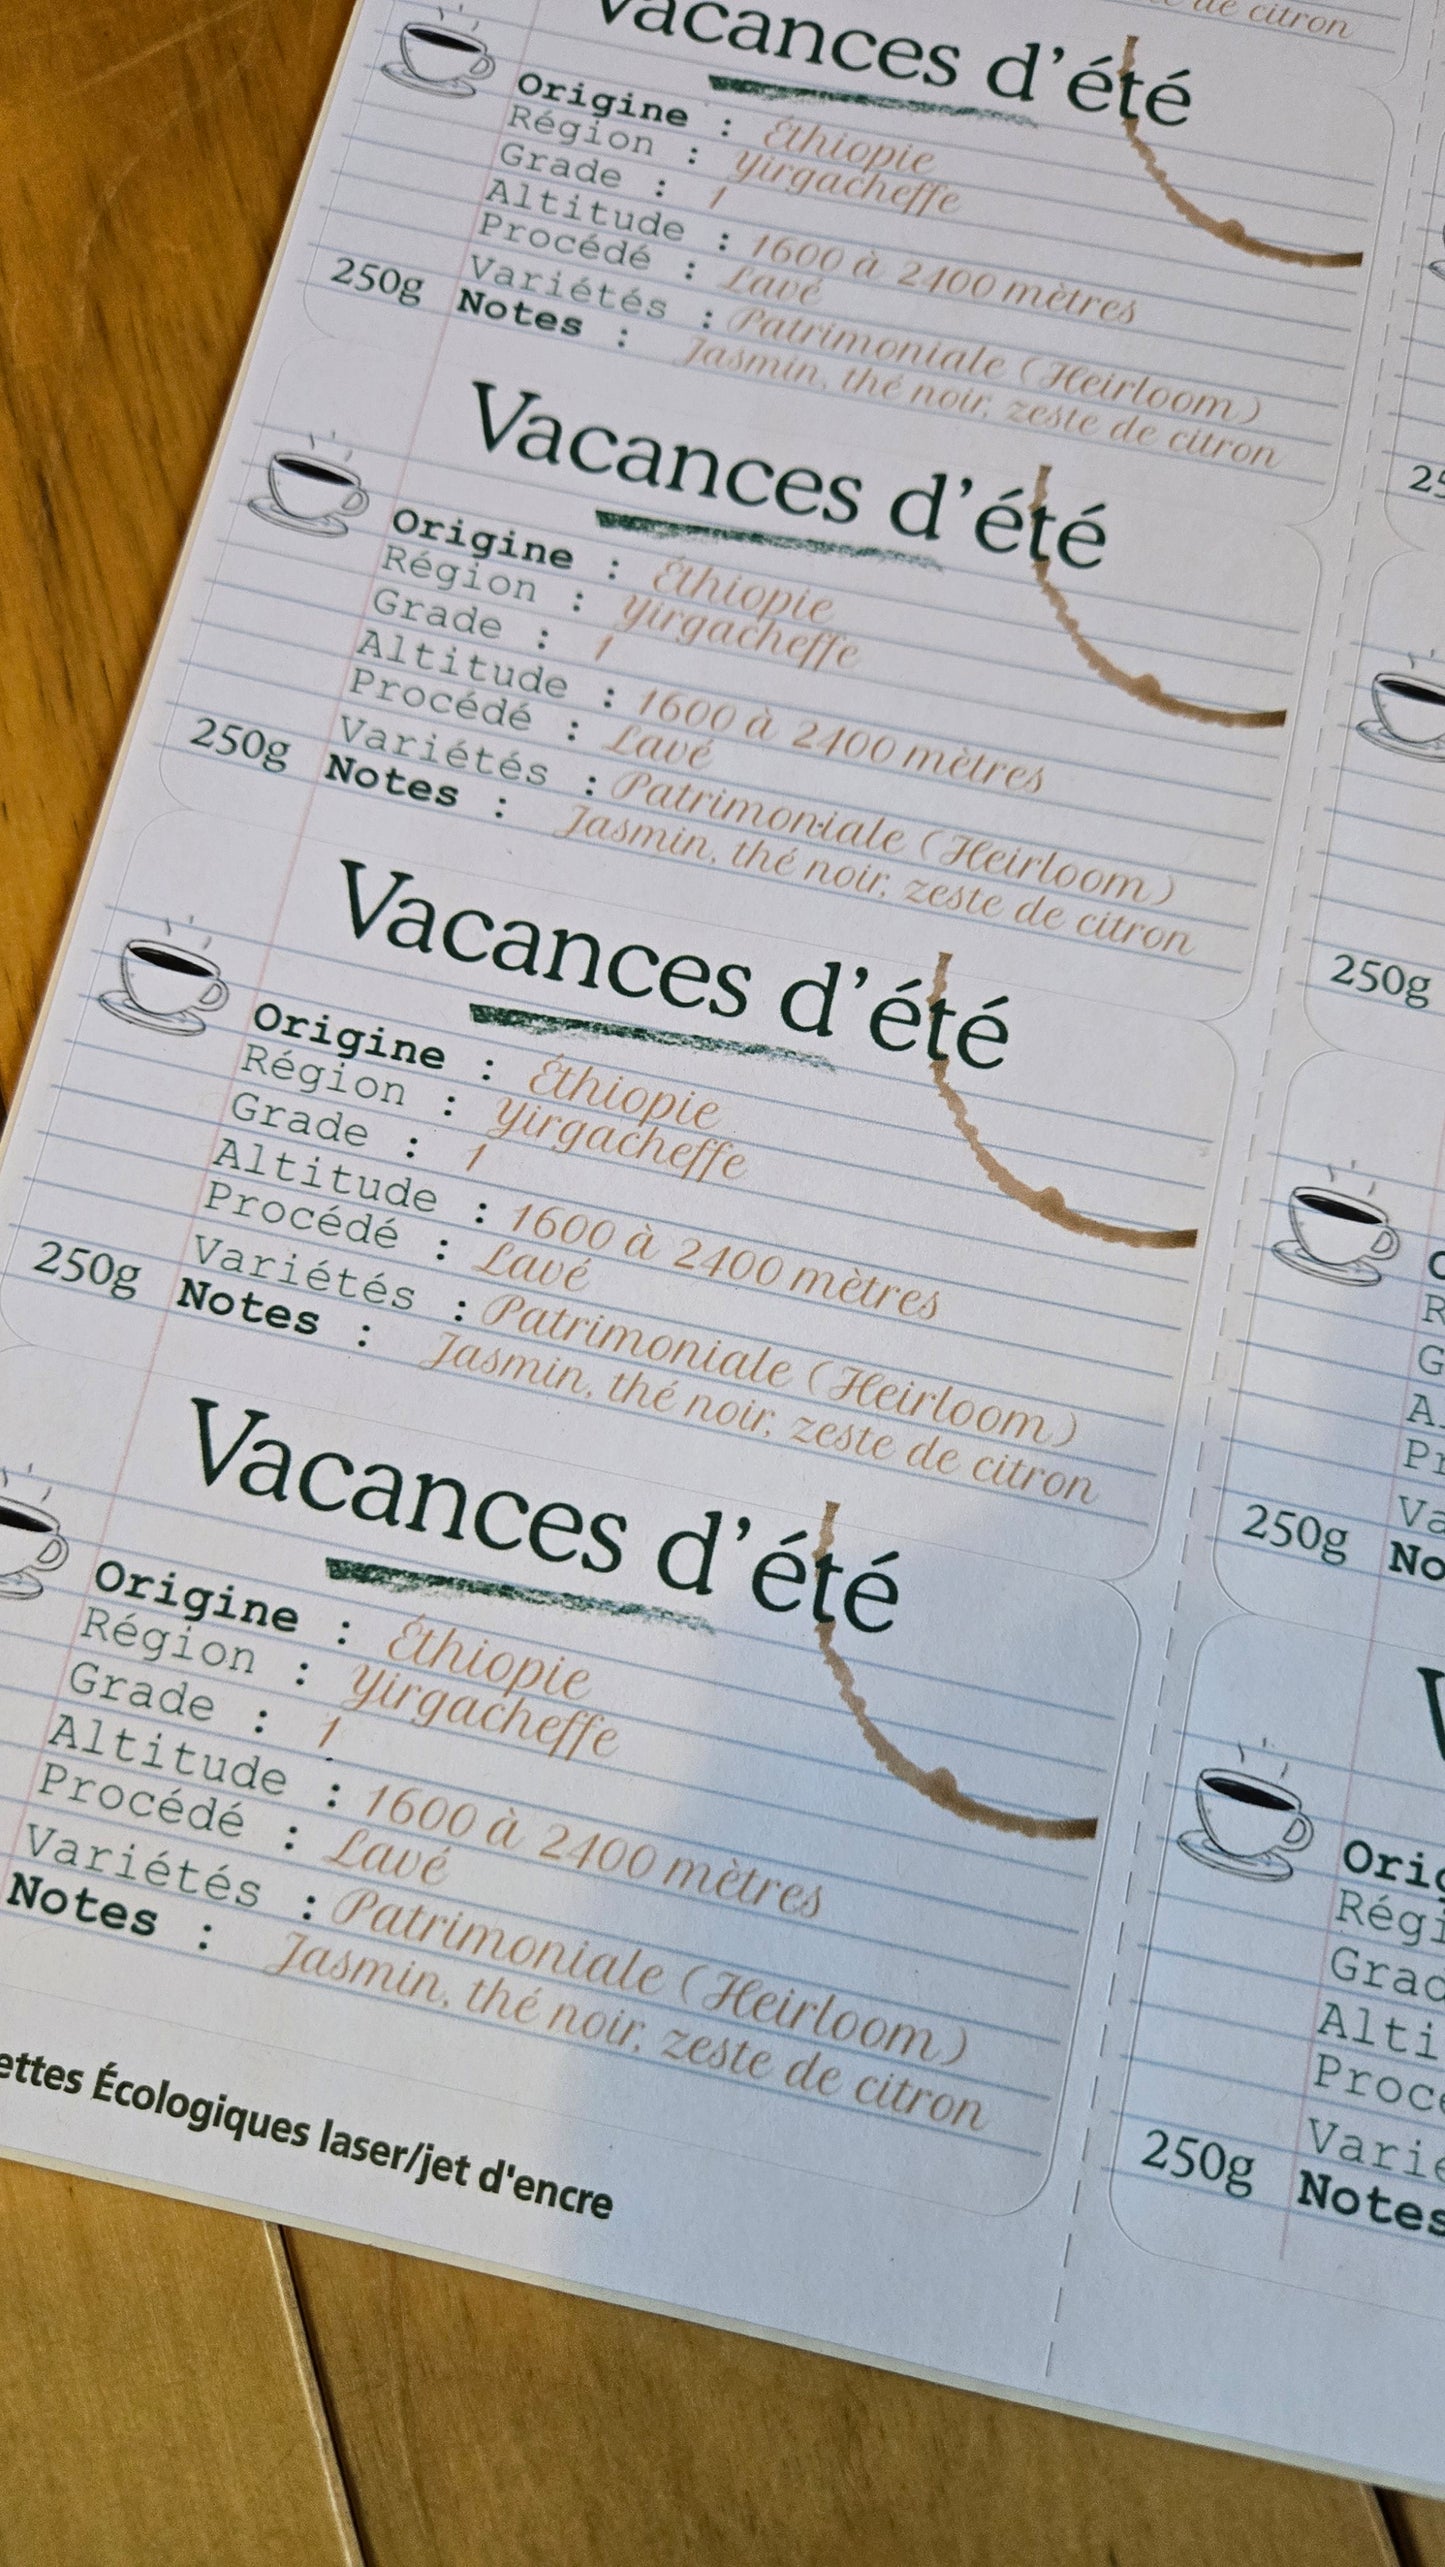 de citron
Vacances d'été
Origine : Éthiopie
Région : Yirgacheffe
Grade : 1
Altitude : 1600 à 2400 mètres
Procédé : Lavé
Variétés : Patrimoniale (Heirloom)
250g Notes : Jasmin, thé noir, zeste de citron
Vacances d'été
Origine : Éthiopie
Région : Yirgacheffe
Grade : 1
Altitude : 1600 à 2400 mètres
Procédé : Lavé
Variétés : Patrimoniale (Heirloom)
250g Notes : Jasmin, thé noir, zeste de citron
Vacances d'été
Origine : Éthiopie
Région : Yirgacheffe
Grade : 1
Altitude : 1600 à 2400 mètres
Procédé : Lavé
Variétés : Patrimoniale (Heirloom)
250g Notes : Jasmin, thé noir, zeste de citron
Vacances d'été
Origine : Éthiopie
Région : Yirgacheffe
Grade : 1
Altitude : 1600 à 2400 mètres
Procédé : Lavé
Variétés : Patrimoniale (Heirloom)
Notes : Jasmin, thé noir, zeste de citron
ettes Écologiques laser/jet d'encre
25
250g
O
R
G
A
Pr
Va
250g No
V
Orig
Régi
Grad
Alti
Procé
Varié
250g Notes